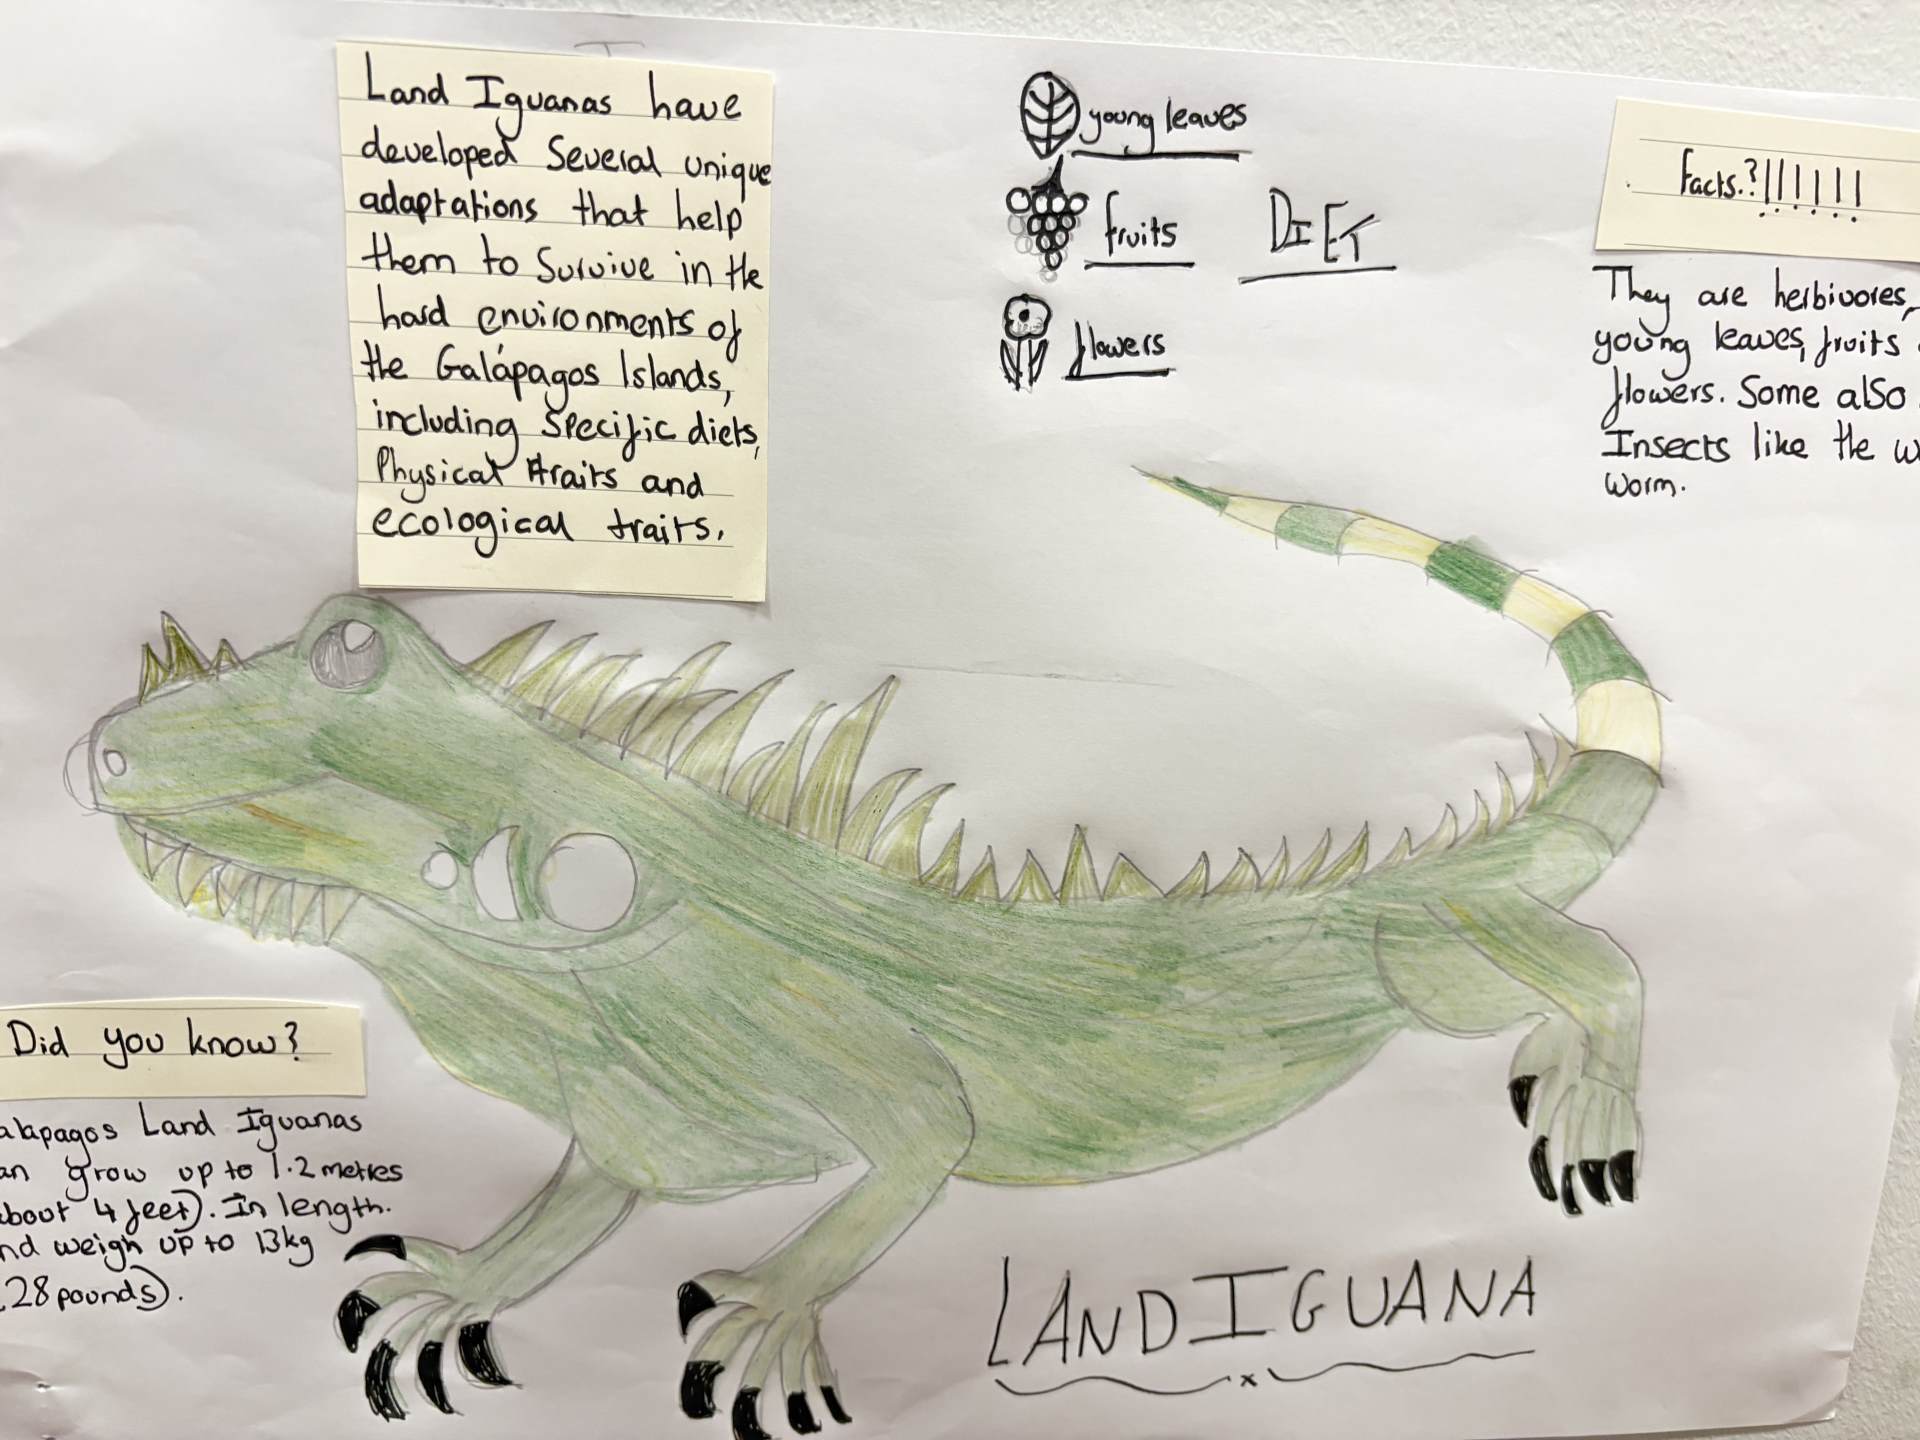 Land Iguanas have
developed Several unique
adaptations that help
them to Survive in the
hard environments of
the Galápagos Islands,
including Specific diets,
Physical traits and
ecological traits.
young leaves
fruits
flowers
DIET
Facts.?!!!!!!
They are herbivores,
young leaves, fruits
flowers. Some also
Insects like the
worm.
Did you know?
Land Iguanas
grow up to 1.2 metres
4 feet). In length.
weigh up to 13kg
28 pounds).
LAND IGUANA